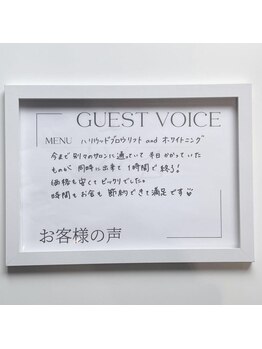 GUEST VOICE
MENU ハリウッドブロウリフト and ホワイトニング
今まで別々のサロンに通っていて 半日かかっていた
ものが 同時に出来て1時間で終了!
価格も安くてビックリでした。
時間もお金も節約できて満足です
お客様の声